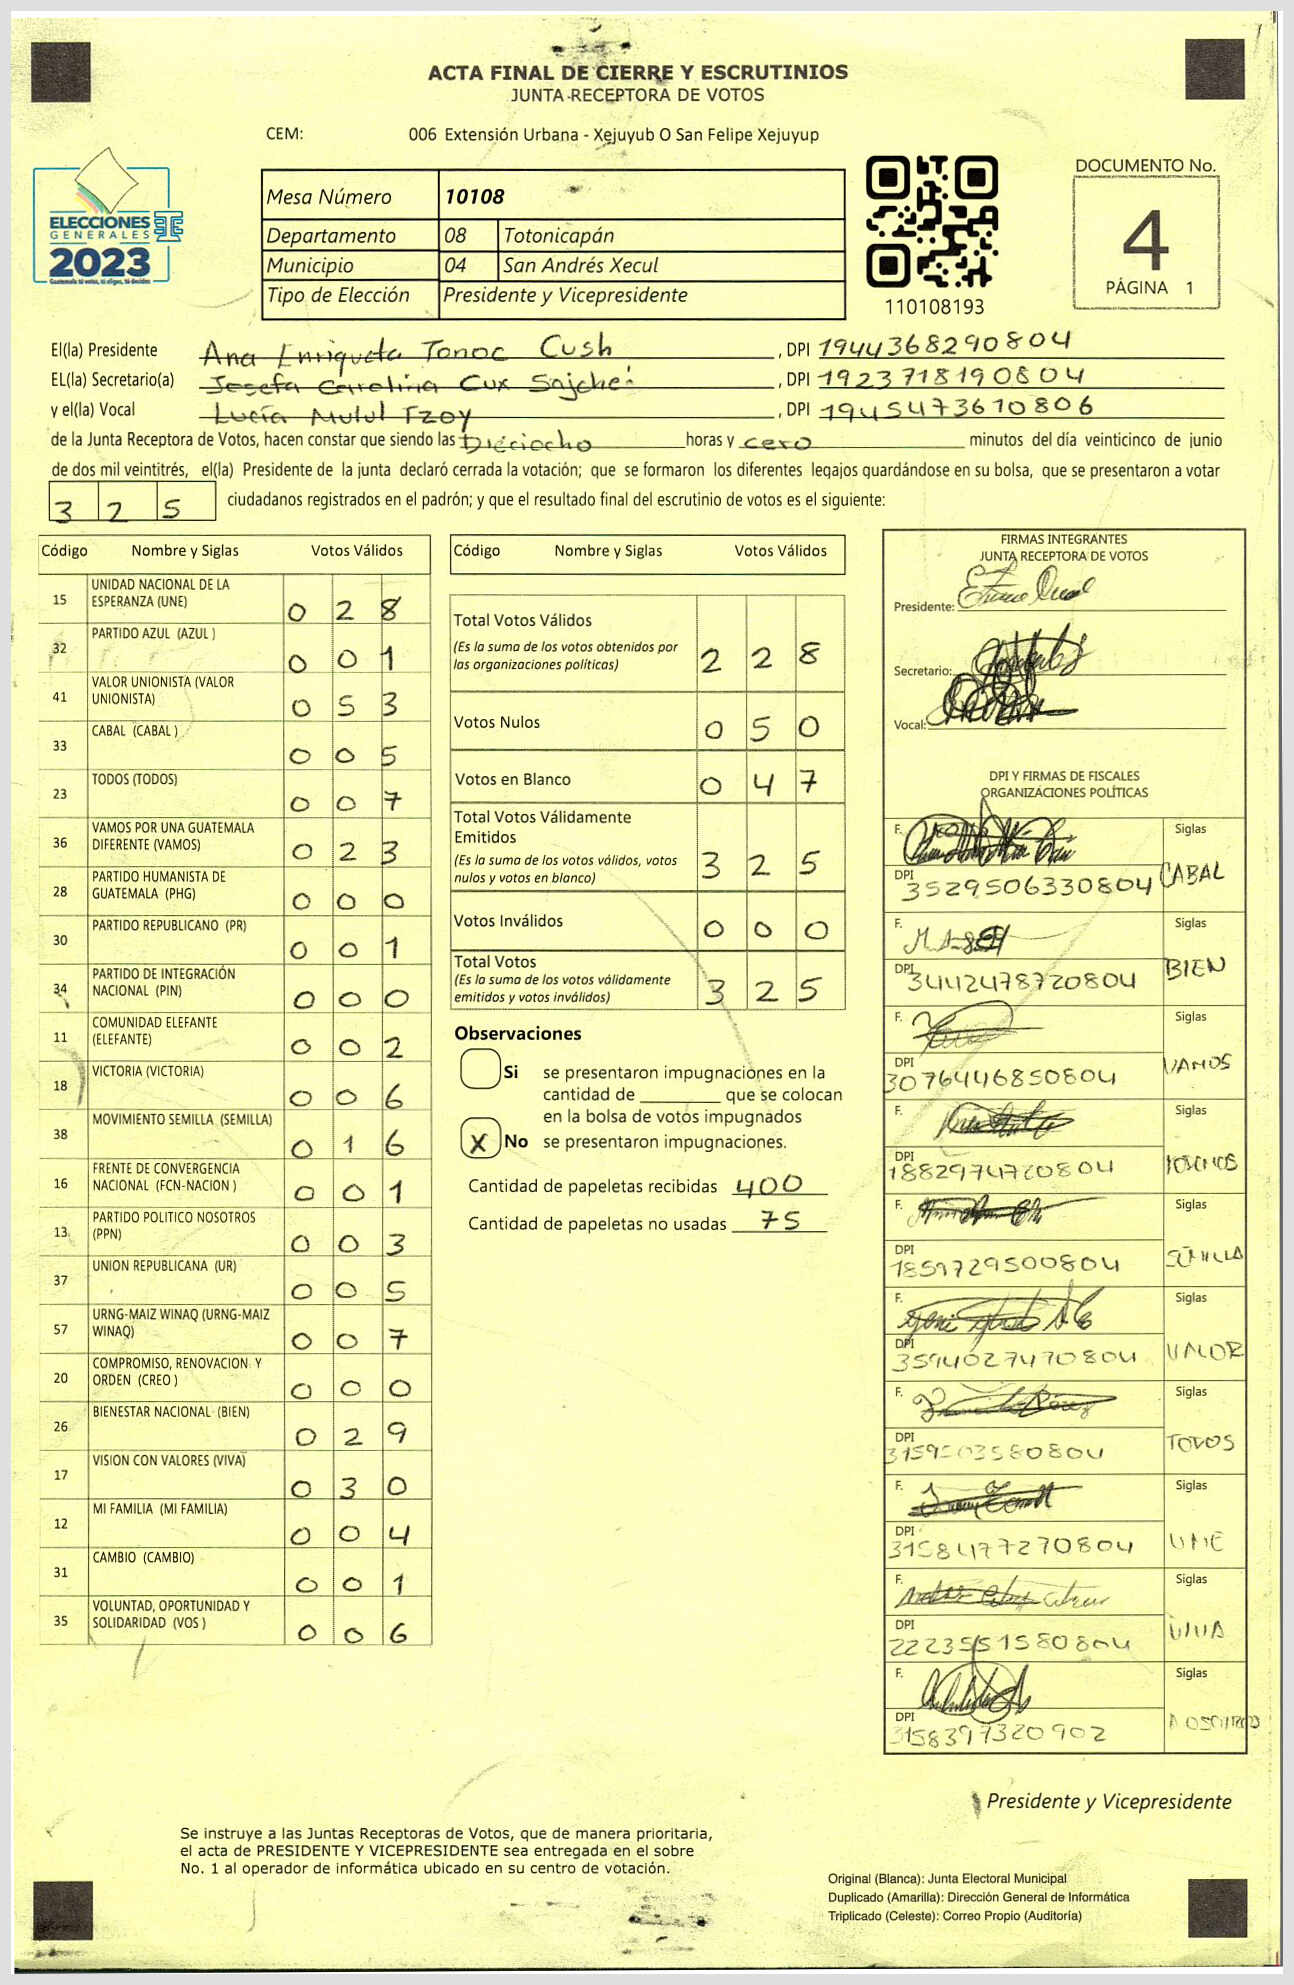 ACTA FINAL DE CIERRE Y ESCRUTINIOS
JUNTA RECEPTORA DE VOTOS
CEM: 006 Extensión Urbana - Xejuyub O San Felipe Xejuyup
ELECCIONES
GENERALES
2023
Mesa Número 10108
Departamento 08 Totonicapán
Municipio 04 San Andrés Xecul
Tipo de Elección Presidente y Vicepresidente
110108193
DOCUMENTO No.
4
PÁGINA 1
El(la) Presidente Ana Enriqueta Tonoc Cush , DPI 1944368290804
EL(la) Secretario(a) Josefa Carolina Cux Sajché , DPI 1923718190804
y el(la) Vocal Lucía Mulul Tzoy , DPI 1945473610806
de la Junta Receptora de Votos, hacen constar que siendo las Dieciocho horas y cero minutos del día veinticinco de junio
de dos mil veintitrés, el(la) Presidente de la junta declaró cerrada la votación; que se formaron los diferentes legajos guardándose en su bolsa, que se presentaron a votar
3 2 5 ciudadanos registrados en el padrón; y que el resultado final del escrutinio de votos es el siguiente:
Código Nombre y Siglas Votos Válidos
15 UNIDAD NACIONAL DE LA ESPERANZA (UNE) 0 2 8
32 PARTIDO AZUL (AZUL ) 0 0 1
41 VALOR UNIONISTA (VALOR UNIONISTA) 0 5 3
33 CABAL (CABAL ) 0 0 5
23 TODOS (TODOS) 0 0 7
36 VAMOS POR UNA GUATEMALA DIFERENTE (VAMOS) 0 2 3
28 PARTIDO HUMANISTA DE GUATEMALA (PHG) 0 0 0
30 PARTIDO REPUBLICANO (PR) 0 0 1
34 PARTIDO DE INTEGRACIÓN NACIONAL (PIN) 0 0 0
11 COMUNIDAD ELEFANTE (ELEFANTE) 0 0 2
18 VICTORIA (VICTORIA) 0 0 6
38 MOVIMIENTO SEMILLA (SEMILLA) 0 1 6
16 FRENTE DE CONVERGENCIA NACIONAL (FCN-NACION ) 0 0 1
13 PARTIDO POLITICO NOSOTROS (PPN) 0 0 3
37 UNION REPUBLICANA (UR) 0 0 5
57 URNG-MAIZ WINAQ (URNG-MAIZ WINAQ) 0 0 7
20 COMPROMISO, RENOVACION Y ORDEN (CREO ) 0 0 0
26 BIENESTAR NACIONAL (BIEN) 0 2 9
17 VISION CON VALORES (VIVA) 0 3 0
12 MI FAMILIA (MI FAMILIA) 0 0 4
31 CAMBIO (CAMBIO) 0 0 1
35 VOLUNTAD, OPORTUNIDAD Y SOLIDARIDAD (VOS ) 0 0 6
Código Nombre y Siglas Votos Válidos
Total Votos Válidos 2 2 8
(Es la suma de los votos obtenidos por
las organizaciones políticas)
Votos Nulos 0 5 0
Votos en Blanco 0 4 7
Total Votos Válidamente
Emitidos 3 2 5
(Es la suma de los votos válidos, votos
nulos y votos en blanco)
Votos Inválidos 0 0 0
Total Votos 3 2 5
(Es la suma de los votos válidamente
emitidos y votos inválidos)
Observaciones
Si se presentaron impugnaciones en la
cantidad de ________ que se colocan
en la bolsa de votos impugnados
X No se presentaron impugnaciones.
Cantidad de papeletas recibidas 400
Cantidad de papeletas no usadas 75
FIRMAS INTEGRANTES
JUNTA RECEPTORA DE VOTOS
Presidente:
Secretario:
Vocal:
DPI Y FIRMAS DE FISCALES
ORGANIZACIONES POLÍTICAS
F. Siglas
DPI 3529506330804 CABAL
F. Siglas
DPI 3442478720804 BIEN
F. Siglas
DPI 3076446850804 VAMOS
F. Siglas
DPI 1882974720804
F. Siglas
DPI 1859729500804 SEMILLA
F. Siglas
DPI 3594027470804 VALOR
F. Siglas
DPI 3159503580804 TODOS
F. Siglas
DPI 3158477270804 UNE
F. Siglas
DPI 2223551580804 VIVA
F. Siglas
DPI 3158397320902 NOSOTROS
Presidente y Vicepresidente
Se instruye a las Juntas Receptoras de Votos, que de manera prioritaria,
el acta de PRESIDENTE Y VICEPRESIDENTE sea entregada en el sobre
No. 1 al operador de informática ubicado en su centro de votación.
Original (Blanca): Junta Electoral Municipal
Duplicado (Amarilla): Dirección General de Informática
Triplicado (Celeste): Correo Propio (Auditoría)